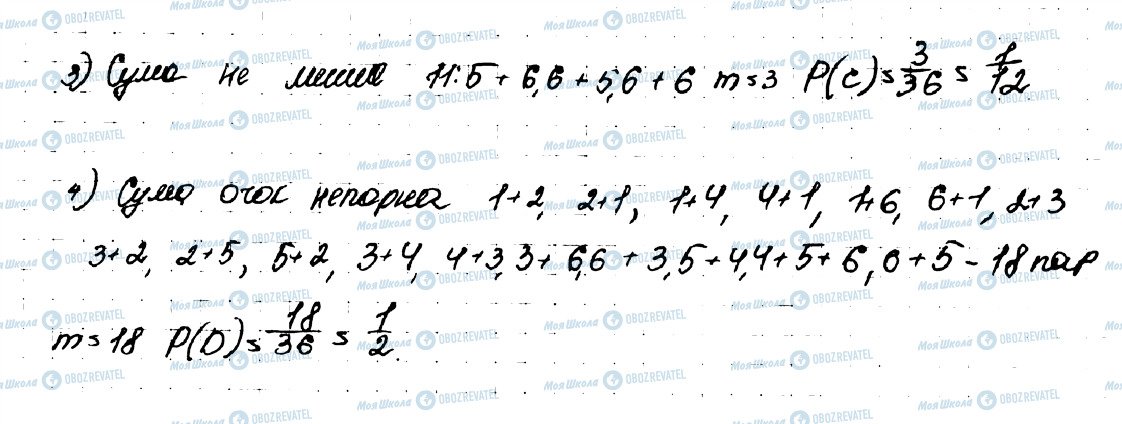 3) Сума не менше 11: 5 + 6, 6 + 5, 6 + 6 m = 3 P(C) = 3/36 = 1/12
4) Сума очок непарна 1+2, 2+1, 1+4, 4+1, 1+6, 6+1, 2+3
3+2, 2+5, 5+2, 3+4, 4+3, 3+6, 6+3, 5+4, 4+5+6, 6+5 - 18 пар
m = 18 P(D) = 18/36 = 1/2.
Моя Школа OBOZREVATEL